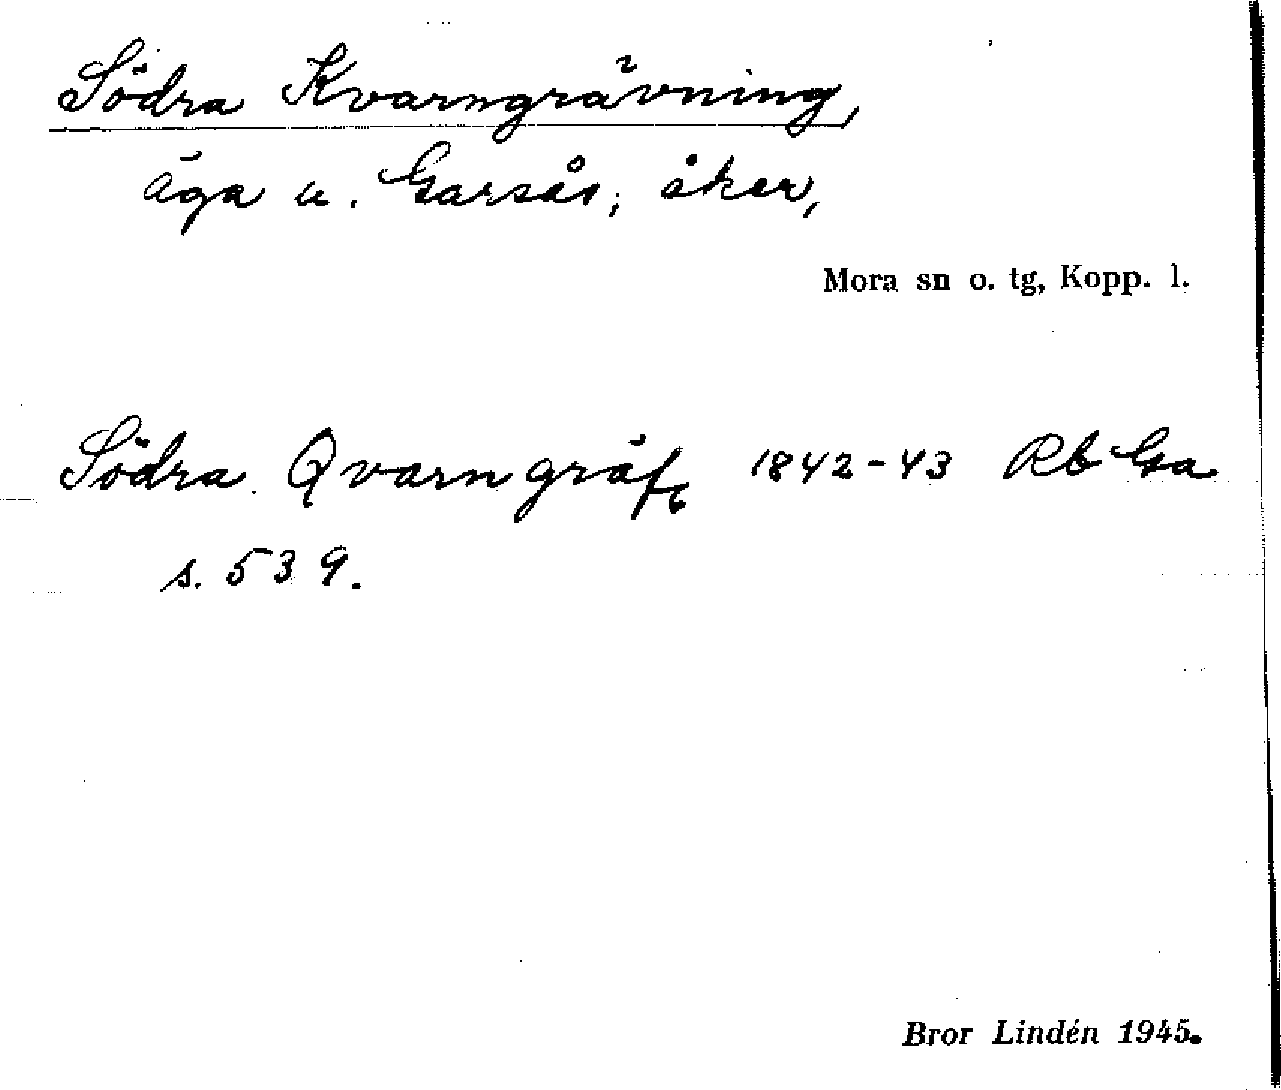 Södra Kvarngrävning,
äga u. Garsås; åker,
Mora sn o. tg, Kopp. l.
Södra Qvarngräf, 1842-43 Rb Ga
s. 539.
Bror Lindén 1945.